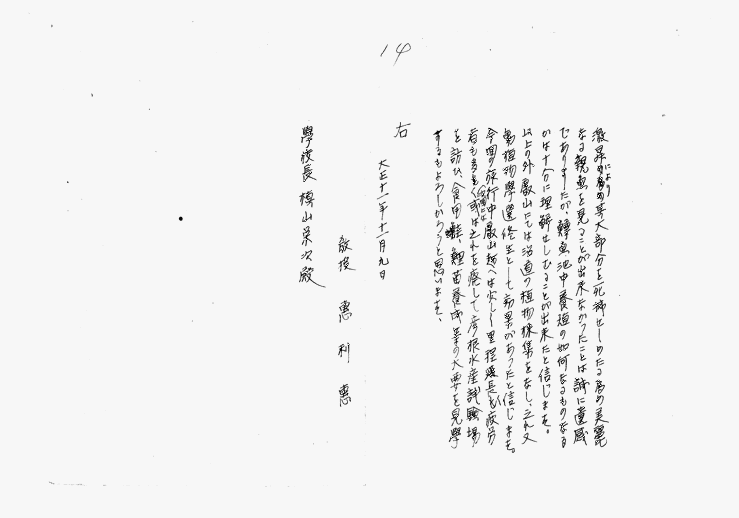 14
激昇により其大部分を死歸せしめたる為め美麗
なる親魚を見ることが出来なかつたことは誠に遺感
でありましたが、鱒魚池中養殖の如何なるものなる
かは十分に理解せしむることが出来たと信じます。
以上の外叡山にては沿道の植物採集をなし、之れ又
動植物學選修生として効果があつたと信じます。
今回の旅行中叡山越へは少しく里程延長し疲労
者も多く或は之れを癈して彦根水産試驗場
を訪ひ、食用蛙、鯉苗養成等の大要を見學
するもよろしかろうと思います、
右
大正十一年十一月九日
教授 惠利惠
學校長 樽山栄次殿